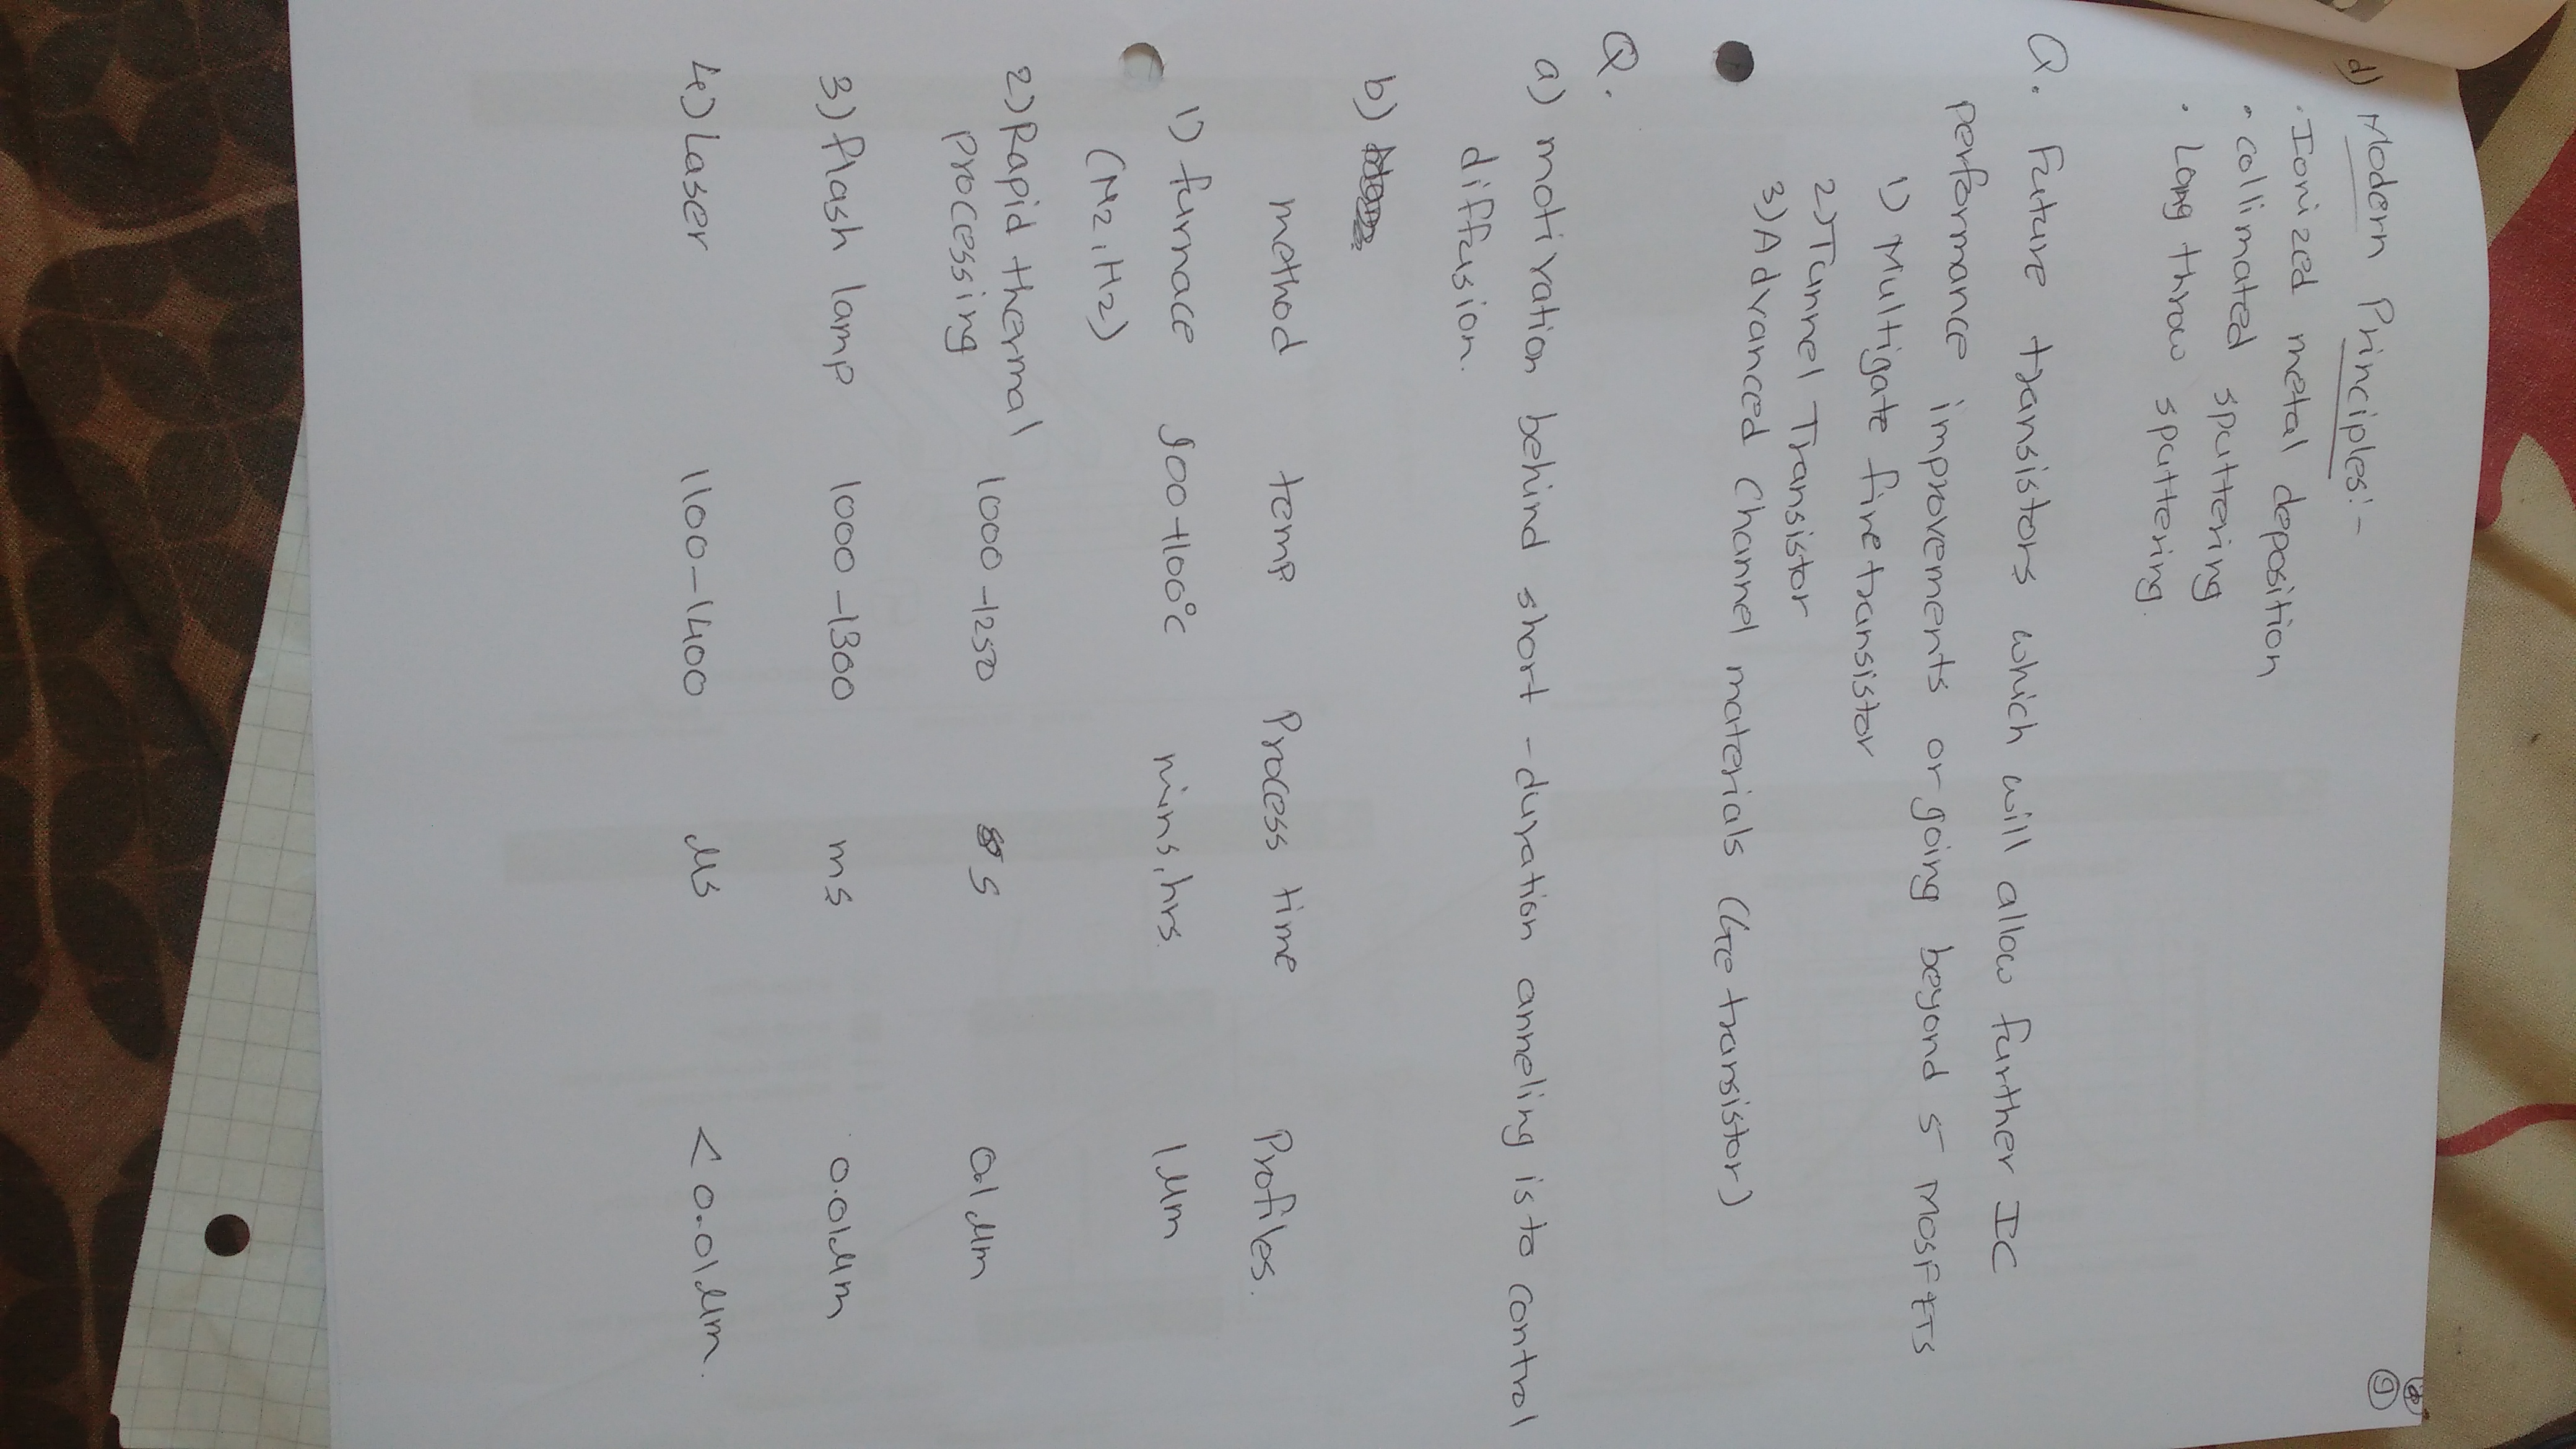 9
d) Modern Principles:-
· Ionized metal deposition
· collimated sputtering
· Long throw sputtering.
Q. Future transistors which will allow further IC
performance improvements or going beyond 5 MOSFETS
1) Multigate fine transistor
2) Tunnel Transistor
3) Advanced Channel materials (Ge transistor)
Q.
a) motivation behind short-duration anneling is to control
diffusion.
b)
method temp Process time Profiles.
1) furnace 800-1100°C mins, hrs. 1 µm
(N2, H2)
2) Rapid thermal 1000-1250 s 0.1 µm
processing
3) flash lamp 1000-1300 ms 0.01 µm
4) Laser 1100-1400 µs < 0.01 µm.